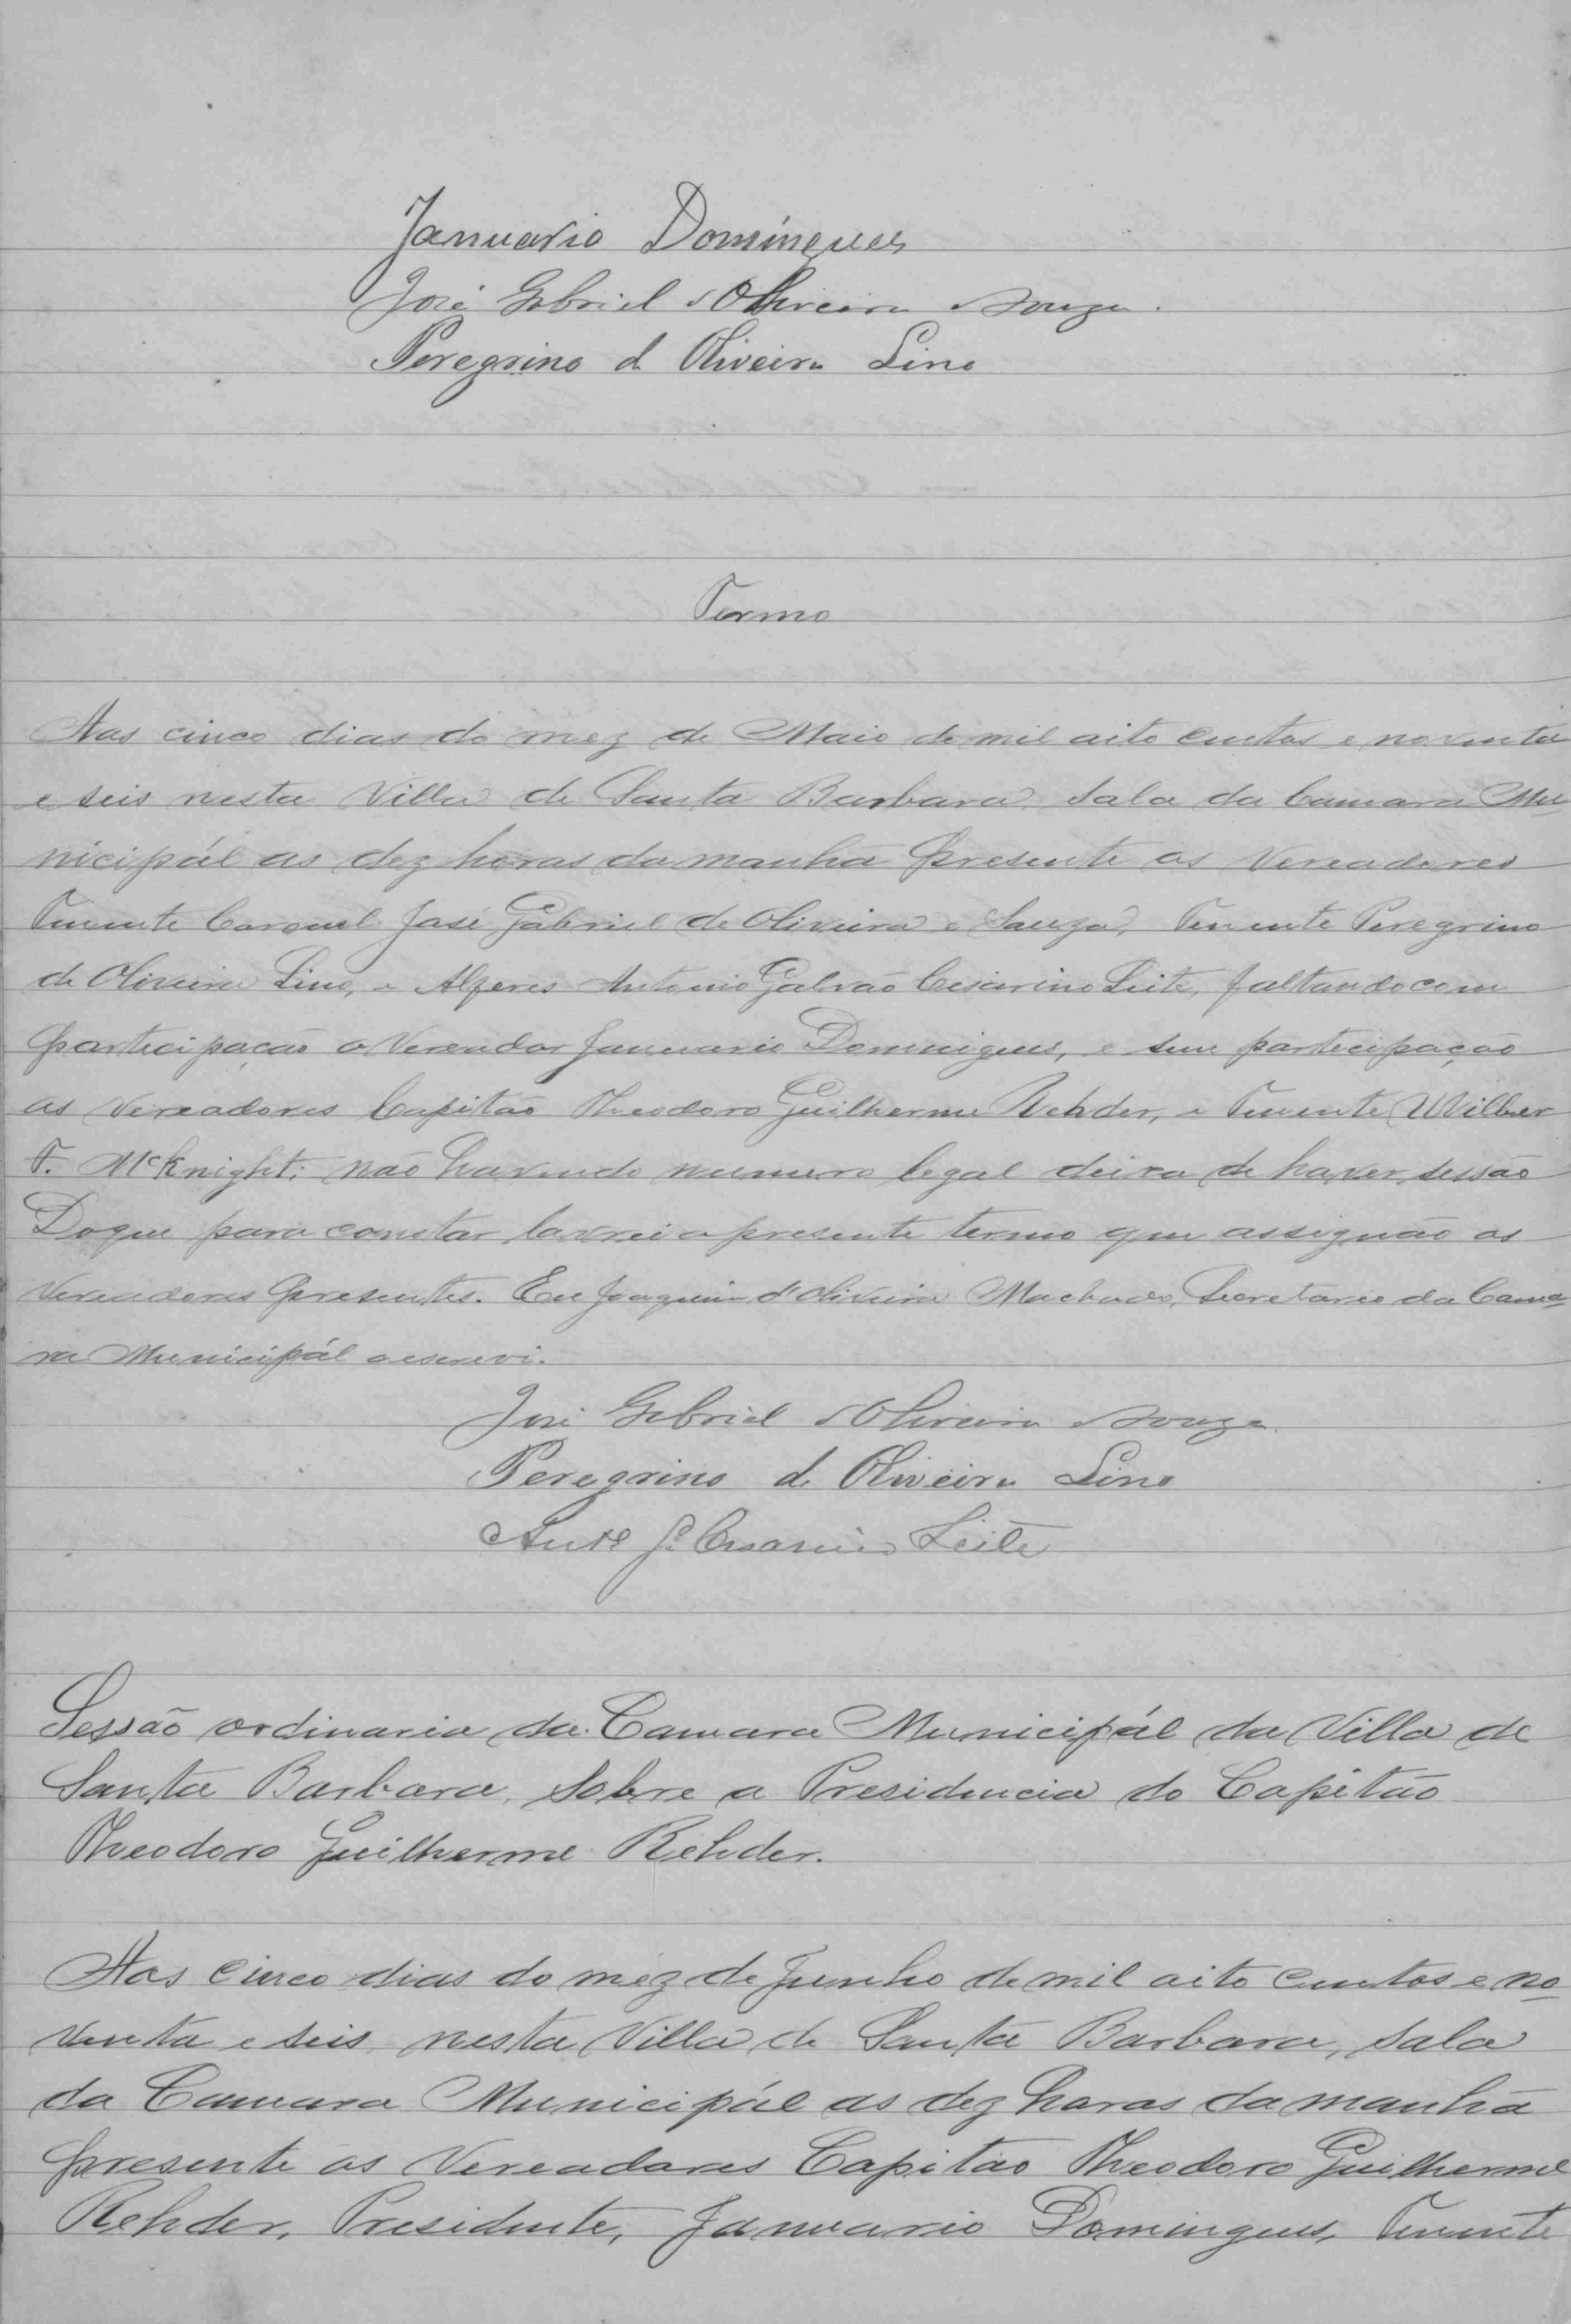 Januario Domingues
José Gabriel d'Oliveira e Souza.
Peregrino d Oliveira Lino
Termo
Aos cinco dias do mez de Maio de mil oito centos e noventa
e seis nesta Villa de Santa Barbara, Sala da Camara Mu
nicipál as dez horas da manhã presente os Vereadores
Tenente Coronel José Gabriel de Oliveira e Souza, Tenente Peregrino
de Oliveira Lino, e Alferes Antonio Galvão Cesarino Leite, faltando com
participação o Vereador Januario Domingues, e sem participação
os Vereadores Capitão Theodoro Guilherme Rehder, e Tenente Wilber
F. McKnight; não havendo numero legal deixa de haver sessão
Doque para constar lavrei o presente termo que assignão os
Vereadores presentes. Eu Joaquim d'Oliveira Machado, Secretario da Cama
ra Municipál o escrevi.
José Gabriel d'Oliveira e Souza.
Peregrino de Oliveira Lino
Antº G. Cesarino Leite
Sessão ordinaria da Camara Municipál da Villa de
Santa Barbara, Sobre a Presidencia do Capitão
Theodoro Guilherme Rehder.
Aos cinco dias do mez de Junho de mil oito centos e no
venta e seis, nesta Villa de Santa Barbara, Sala
da Camara Municipál as dez horas da manhã
presente os Vereadores Capitão Theodoro Guilherme
Rehder, Presidente, Januario Domingues, Tenente